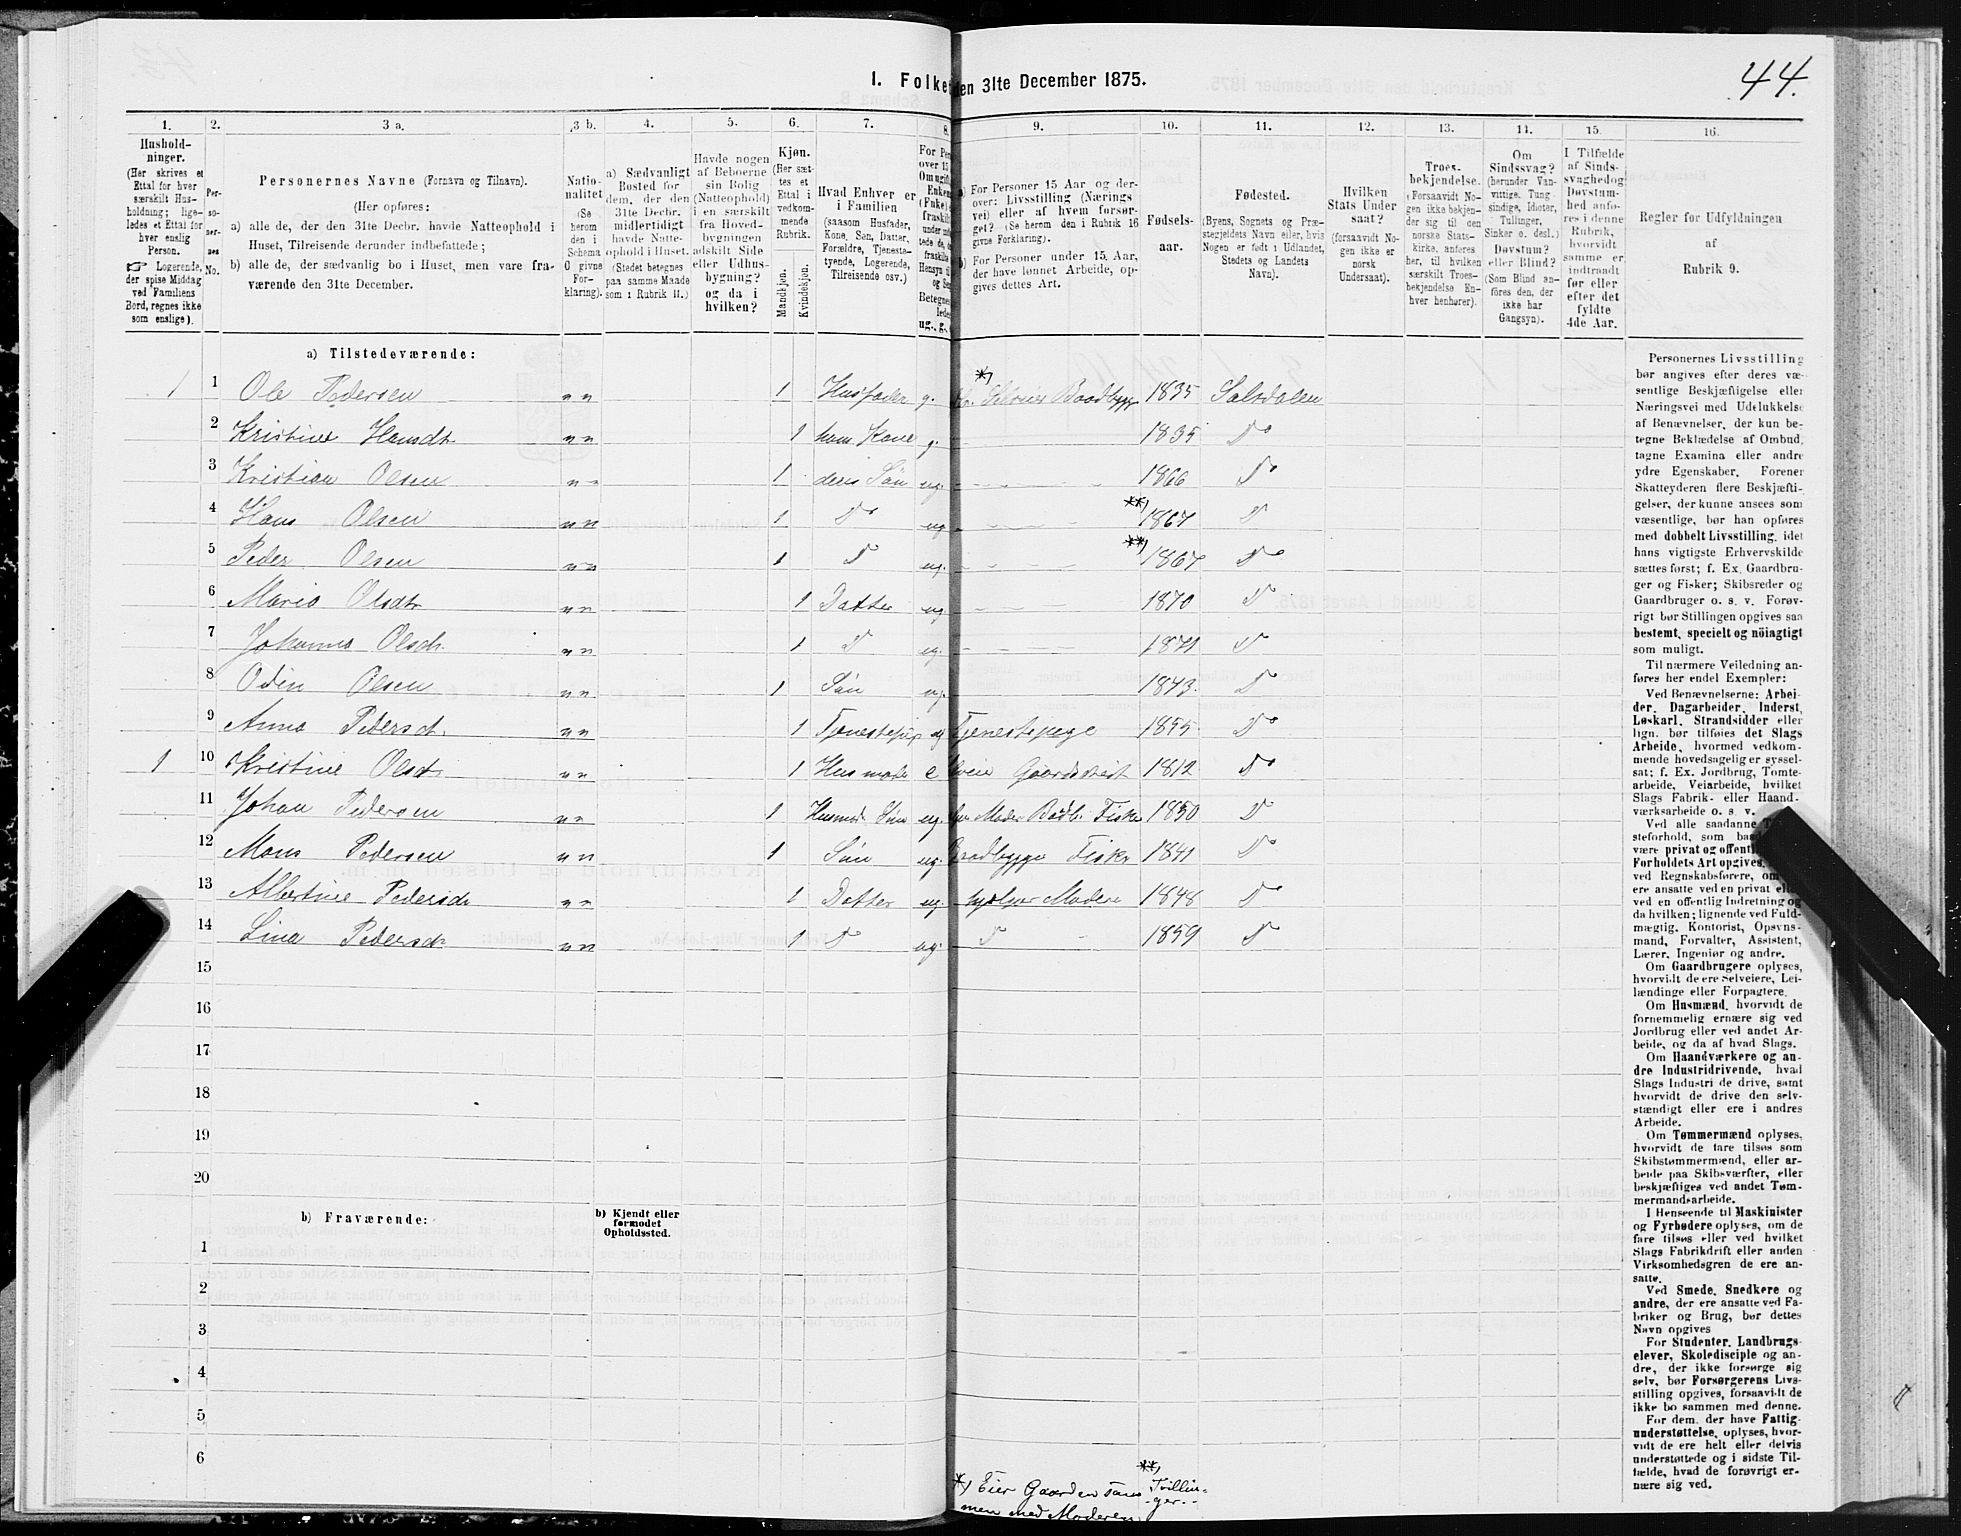 44.
1. Folke den 31te December 1875.
1. 2. 3 a. 3 b. 4. 5. 6. 7. 8. 9. 10. 11. 12. 13. 14. 15. 16.
Hushold-
ninger.
(Her skrives et
Ettal for hver
særskilt Hus-
holdning; lige-
ledes et Ettal for
hver enslig
Person.
☞ Logerende,
der spise Middag
ved Familiens
Bord, regnes ikke
som enslige).
Per-
so-
ner-
nes
No.
Personernes Navne (Fornavn og Tilnavn).
(Her opføres:
a) alle de, der den 31te Decbr. havde Natteophold i
Huset, Tilreisende derunder indbefattede;
b) alle de, der sædvanlig bo i Huset, men vare fra-
værende den 31te December.
Natio-
nalitet
(Se
herom
den i
Schema
O givne
For-
klaring).
a) Sædvanligt
Bosted for
dem, der den
31te Decbr.
midlertidigt
havde Natte-
ophold i Huset.
(Stedet betegnes
paa samme Maade
som i Rubrik 11.)
Havde nogen
af Beboerne
sin Bolig
(Natteophold)
i en særskilt
fra Hoved-
bygningen
adskilt Side
eller Udhus-
bygning?
og da i
hvilken?
Kjøn.
(Her sæt-
tes et
Ettal i
vedkom-
mende
Rubrik.
Mandkjøn.
Kvindekjøn.
Hvad Enhver er
i Familien
(saasom Husfader,
Kone, Søn, Datter,
Forældre, Tjeneste-
tyende, Logerende,
Tilreisende osv.)
For Per
over 15
Om ugift
Enkem
(Fuke)
fraskilt
under
tede de,
fraskilt
Hensyn til
og Sen
Betegnes
lede
ug., g.,
a) For Personer 15 Aar og der-
over: Livsstilling (Nærings
vei) eller af hvem forsør-
get? (Se herom den i Rubrik 16
givne Forklaring).
b) For Personer under 15 Aar,
der have lønnet Arbeide, op-
gives dettes Art.
Fødsels-
aar.
Fødested.
(Byens, Sognets og Præ-
stegjeldets Navn eller, hvis
Nogen er født i Udlandet,
Stedets og Landets
Navn).
Hvilken
Stats Under
saat?
(forsaavidt No-
gen ikke er
norsk
Undersaat).
Troes-
bekjendelse.
(Forsaavidt No-
gen ikke bekjen-
der sig til den
norske Stats-
kirke, anføres
her, til hvilken
særskilt Troes-
bekjendelse En-
hver henhører).
Om
Sindssvag?
(herunder Van-
vittige, Tung
sindige, Idioter,
Tullinger,
Sinker o. desl.)
Døvstum?
eller Blind?
(Som Blind an-
føres den, der
ikke har
Gangsyn).
I Tilfælde
af Sinds-
svaghed og
Døvstum-
hed anfø-
res i denne
Rubrik,
hvorvidt
samme er
indtraadt
før eller
efter det
fyldte
4de Aar.
Regler for Udfyldningen
af
Rubrik 9.
a) Tilstedeværende:
*)
1 1 Ole Pedersen "" 1 Husfader g. Selveier Baadbygg 1835 Salsdalen
2 Kristine Hansdt. "" 1 hans Kone g. 1835 Do
3 Kristian Olsen "" 1 deres Søn ug. - - - 1866 Do
4 Hans Olsen "" 1 Do ug - - - **) 1867 D
5 Peder Olsen "" 1 D ug. - - - **) 1867 Do
6 Maria Olsdt. "" 1 Datter ug - - - 1870 D
7 Johanna Olsdt. "" 1 D ug. - - - 1871 D
8 Odin Olsen "" 1 Søn ug. 1873. D
9 Anna Pedersdt. "" 1 Tjenestepig ug Tjenestepige 1855 Do
1 10 Kristine Olsdt. "" 1 Husmoder e 1812 Do
11 Johan Pedersen "" 1 Husmod. Søn ug. Moder Baadb. Fisker 1850 D
12 Mons Pedersen "" 1 Søn ug. Baadbygger Fisker 1841 D
13 Albertine Pedersdt "" 1 Datter ug. hjelper Moderen 1848 D
14 Lina Pedersdt. "" 1 D ug. D 1859 D
15
16
17
18
19
20
b) Fraværende:
b) Kjendt eller
formodet
Opholdssted.
1
2
3
4
5
6
*) Eier Gaarden sam-
men med Moderen
**)
Tvillin-
-ger.-
Personernes Livsstilling
bør angives efter deres væ-
sentlige Beskjæftigelse eller
Næringsvei med Udelukkelse
af Benævnelser, der kun be-
tegne Beklædelse af Ombud,
tagne Examina eller andre
ydre Egenskaber. Forener
Skatteyderen flere Beskjæfti-
gelser, der kunne ansees som
væsentlige, bør han opføres
med dobbelt Livsstilling, idet
hans vigtigste Erhvervskilde
sættes først; f. Ex. Gaardbru-
ger og Fisker; Skibsreder og
Gaardbruger o. s. v. Forøv-
rigt bør Stillingen opgives saa
bestemt, specielt og nöiagtigt
som muligt.
Til nærmere Veiledning an-
føres her endel Exempler:
Ved Benævnelserne: Arbei-
der, Dagarbeider, Inderst,
Løskarl, Strandsidder eller
lign. bør tilføies det Slags
Arbeide, hvormed vedkom-
mende hovedsagelig er syssel-
sat; f. Ex. Jordbrug, Tomte-
arbeide, Veiarbeide, hvilket
Slags Fabrik- eller Haand-
værksarbeide o. s. v.
Ved alle saadanne
steforhold, som baade
være privat og offent
Forholdets Art opgives,
ved Regnskabsførere, om
ere ansatte ved en privat eller
ved en offentlig Indretning og
da hvilken; lignende ved Fuld-
mægtig, Kontorist, Opsyns-
mand, Forvalter, Assistent,
Lærer, Ingeniør og andre.
Om Gaardbrugere oplyses,
hvorvidt de ere Selveiere, Lei-
lændinge eller Forpagtere.
Om Husmænd, hvorvidt de
fornemmelig ernære sig ved
Jordbrug eller ved andet Ar-
beide, og da af hvad Slags.
Om Haandværkere og an-
dre Industridrivende, hvad
Slags Industri de drive, samt
hvorvidt de drive den selv-
stændigt eller ere i andres
Arbeide.
Om Tømmermænd oplyses,
hvorvidt de fare tilsøs som
Skibstømmermænd, eller ar-
beide paa Skibsværfter, eller
beskjæftiges ved andet Tøm-
mermandsarbeide.
I Henseende til Maskinister
og Fyrbødere oplyses, om de
fare tilsøs eller ved hvilket
Slags Fabrikdrift eller anden
Virksomhedsgren de ere an-
satte.
Ved Smede, Snedkere og
andre, der ere ansatte ved Fa-
briker og Brug, bør dettes
Navn opgives
For Studenter, Landbrugs-
elever, Skoledisciple og an-
dre, der ikke forsørge sig
selv, bør Forsørgerens Livs-
stilling opgives, forsaavidt de
ikke bo sammen med denne.
For dem, der have Fattig-
understøttelse, oplyses, hvor-
vidt de ere helt eller delvis
understøttede og i sidste Til-
fælde, hvad de forøvrigt er-
nære sig ved.